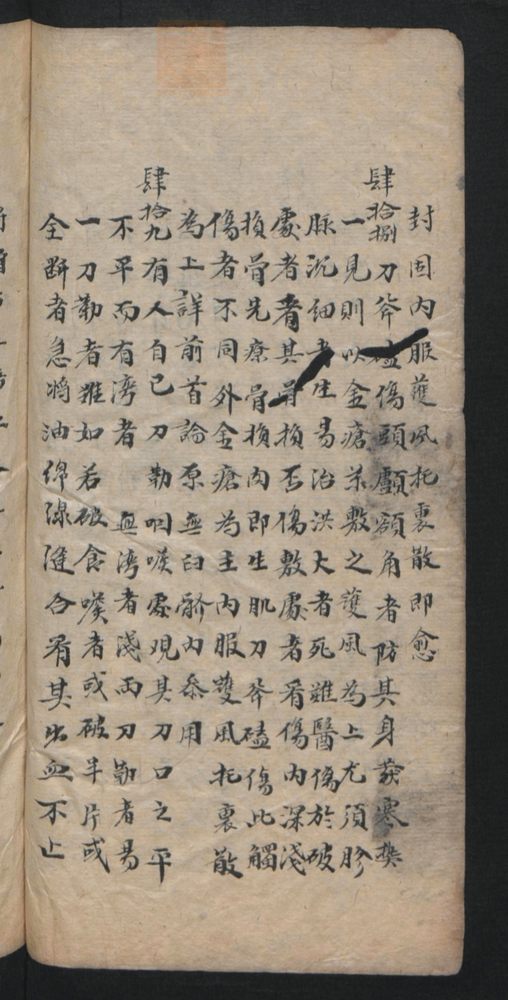 封固內服䕶風托裏散即愈
肆拾捌刀斧磕傷頭顱額角者防其身發寒熱
一見則以金瘡茶敷之䕶風為上尤須胗
脉沉細者生易治洪大者死難醫傷於破
處者者其骨損否傷敷處者看傷內深淺
損骨先療骨損肉即生肌刀斧磕傷此觸
傷者不同外金瘡為主內服䕶風托裏散
為上詳前首論原無臼骱內叅用
肆拾九有人自己刀勒咽喉處覌其刀口之平
不平而有湾者無湾者淺兩刀勒者易
一刀勒者難如若破食嗓者或破半片或
全斷者急將油綿線縫合有其出血不止